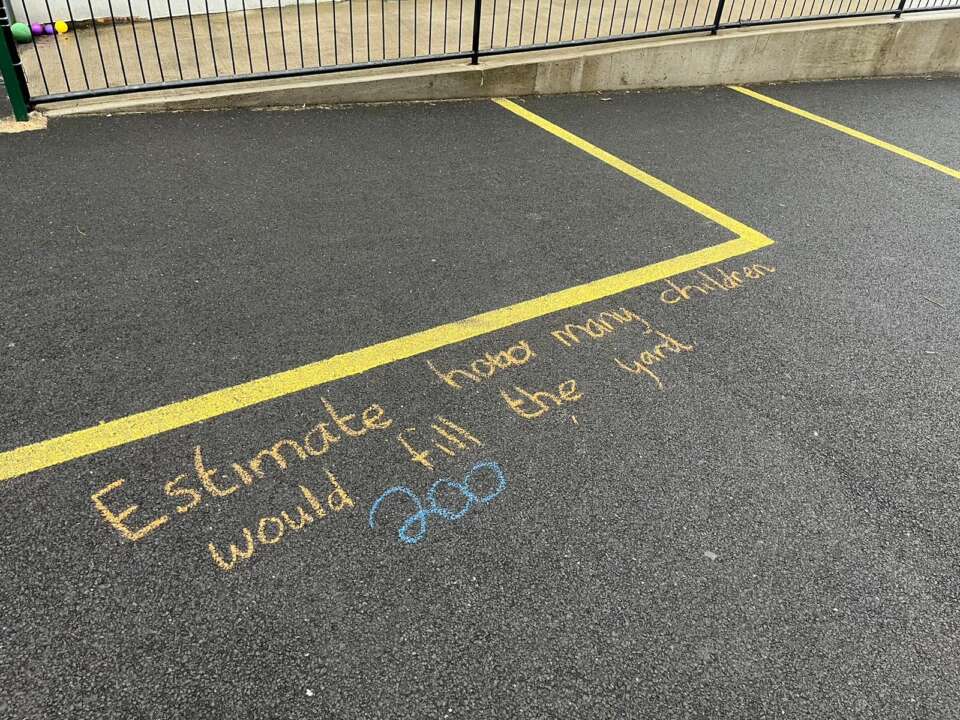 Estimate how many children
would fill the yard
200